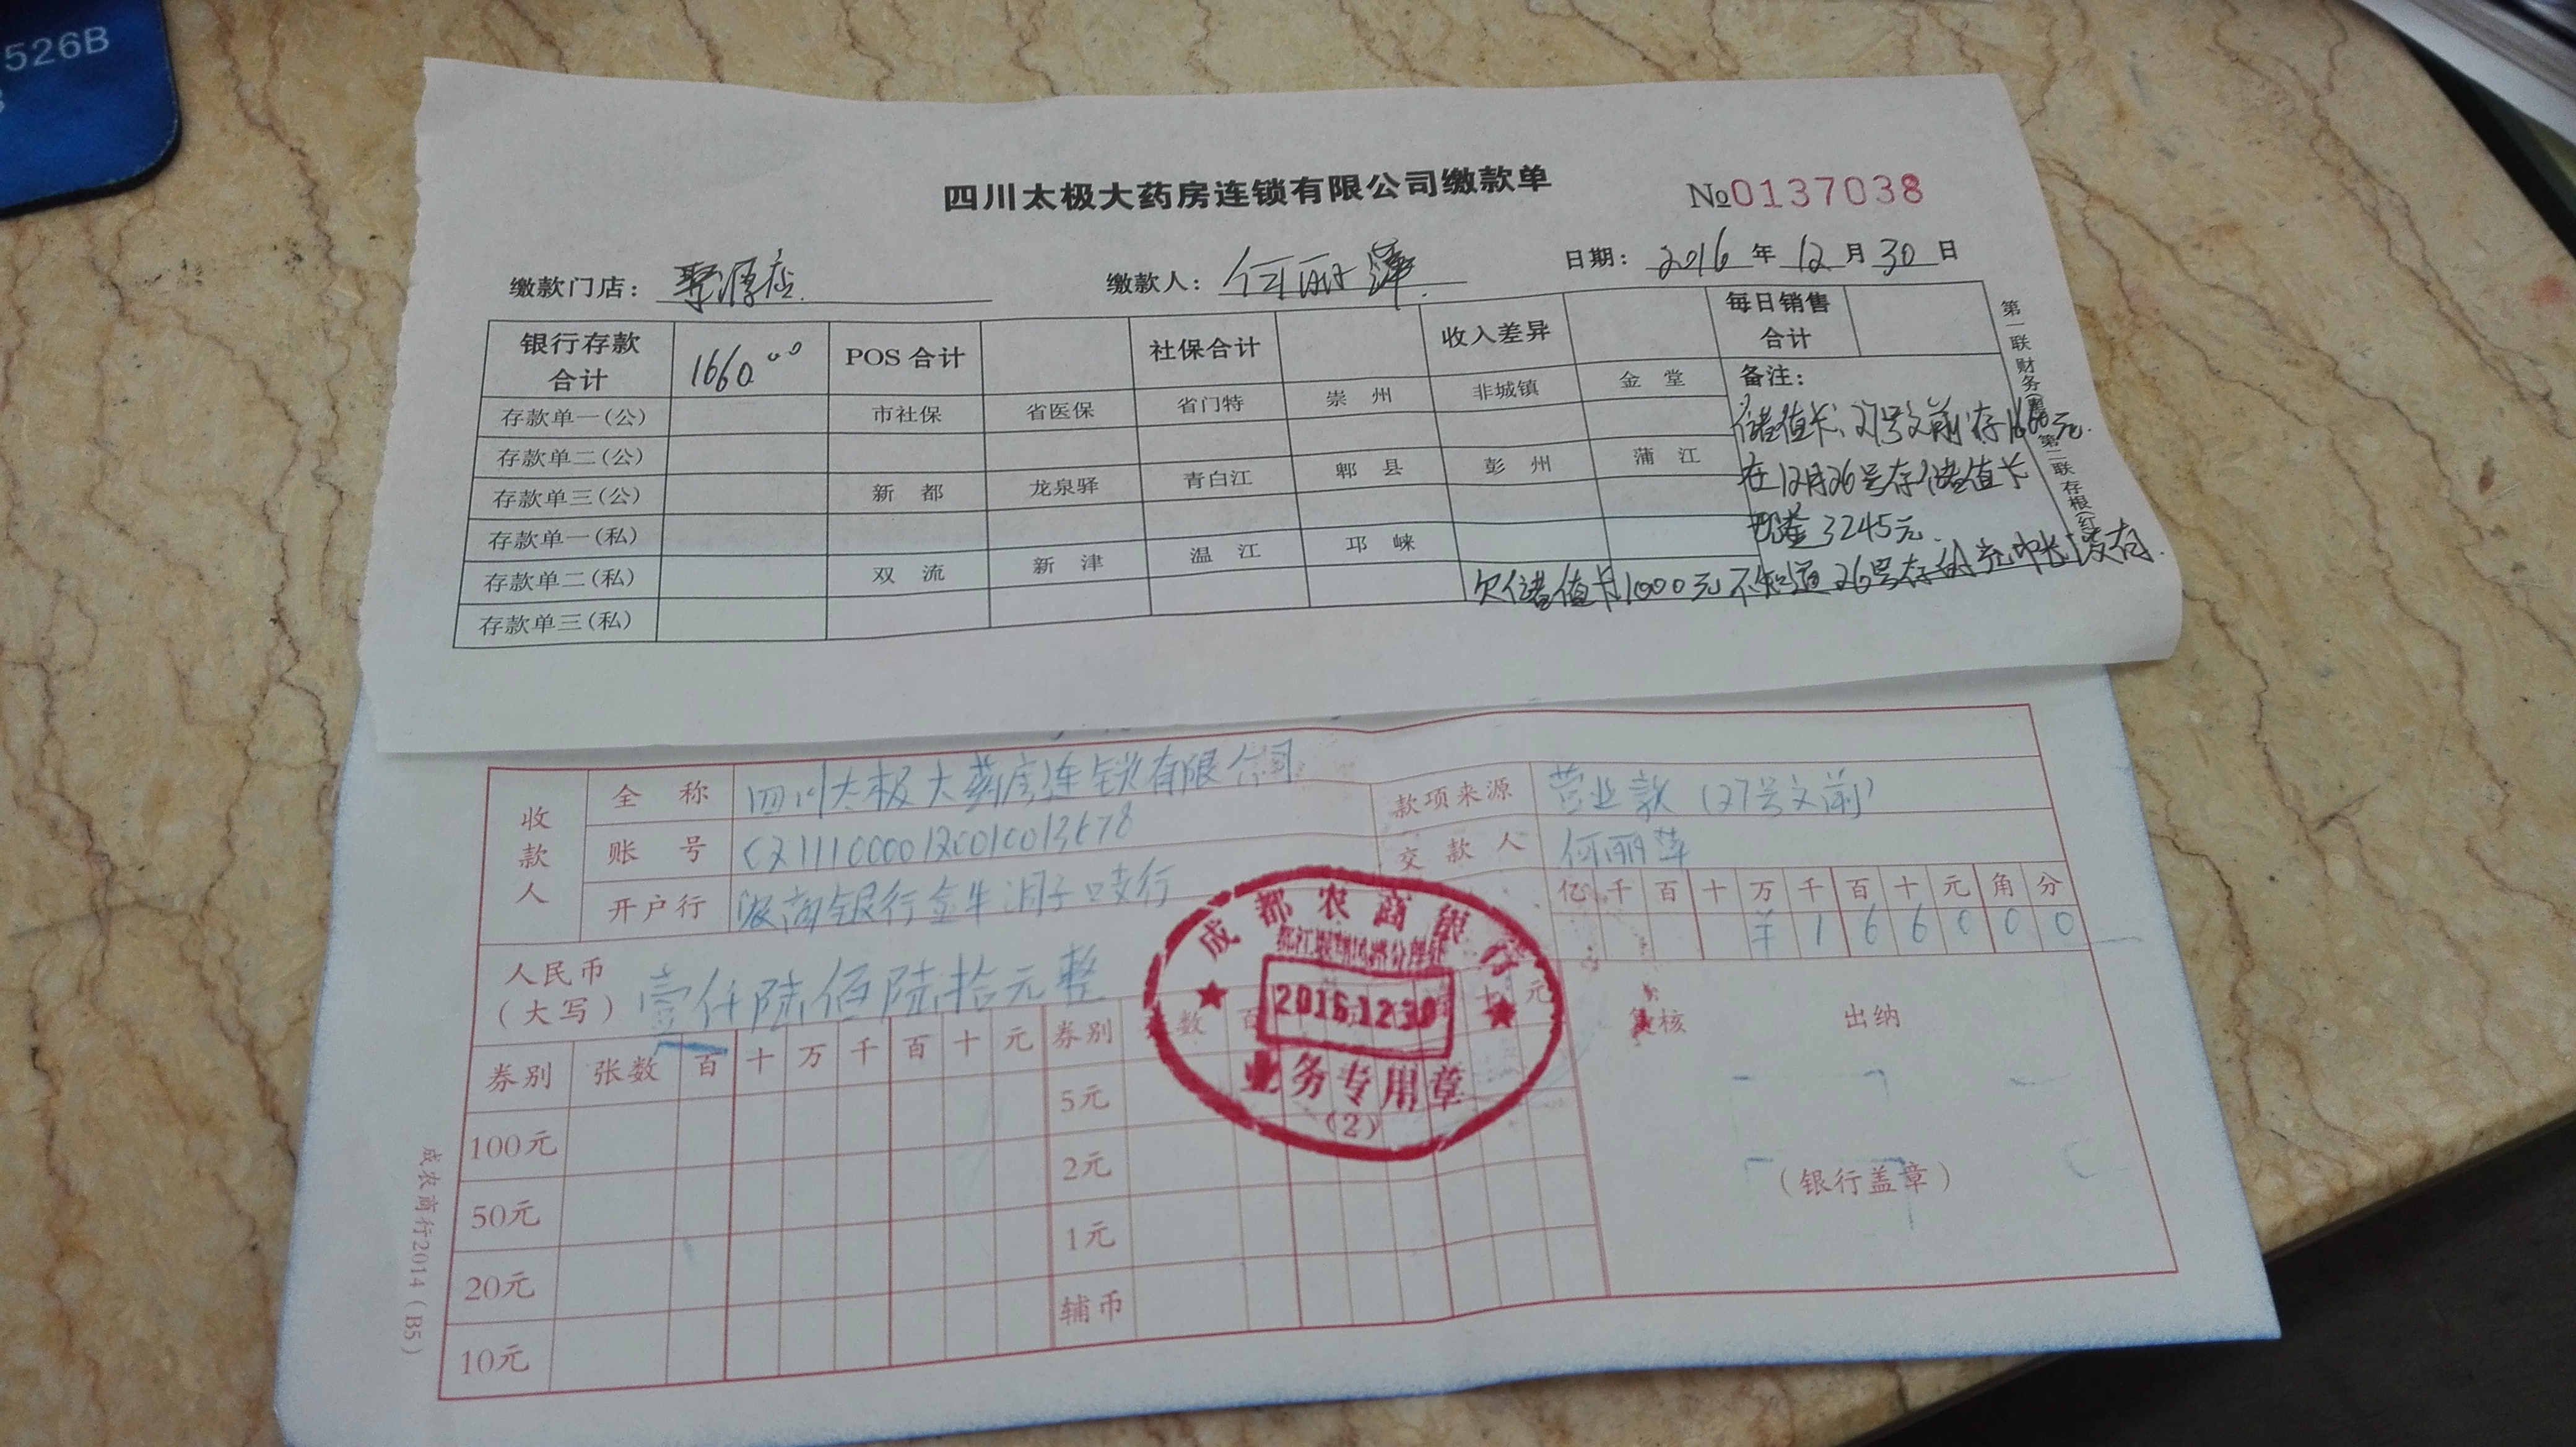 526B
四川太极大药房连锁有限公司缴款单
№0137038
缴款门店: 聚源店
缴款人: 何丽萍
日期: 2016 年 12 月 30 日
银行存款合计 1660.00 POS 合计 社保合计 收入差异 每日销售合计
存款单一(公) 市社保 省医保 省门特 崇州 非城镇 金堂
存款单二(公)
存款单三(公) 新都 龙泉驿 青白江 郫县 彭州 蒲江
存款单一(私)
存款单二(私) 双流 新津 温江 邛崃
存款单三(私)
备注:
储值卡、27号文前存1660元.
在12月26号存储值卡
3245元.
欠储值卡1000元不知道26号存的充中长没有.
第一联 财务
第二联 存根(红
收款人
全称 四川太极大药房连锁有限公司
款项来源 营业款(27号文前)
账号
交款人 何丽萍
开户行
亿 千 百 十 万 千 百 十 元 角 分
¥ 1 6 6 0 0 0
人民币(大写) 壹仟陆佰陆拾元整
成都农商银行
2016.12.30
业务专用章
(2)
复核 出纳
券别 张数 百 十 万 千 百 十 元 券别 数 百 十 元
100元 5元
50元 2元
20元 1元
10元 辅币
(银行盖章)
成农商行2014(B5)